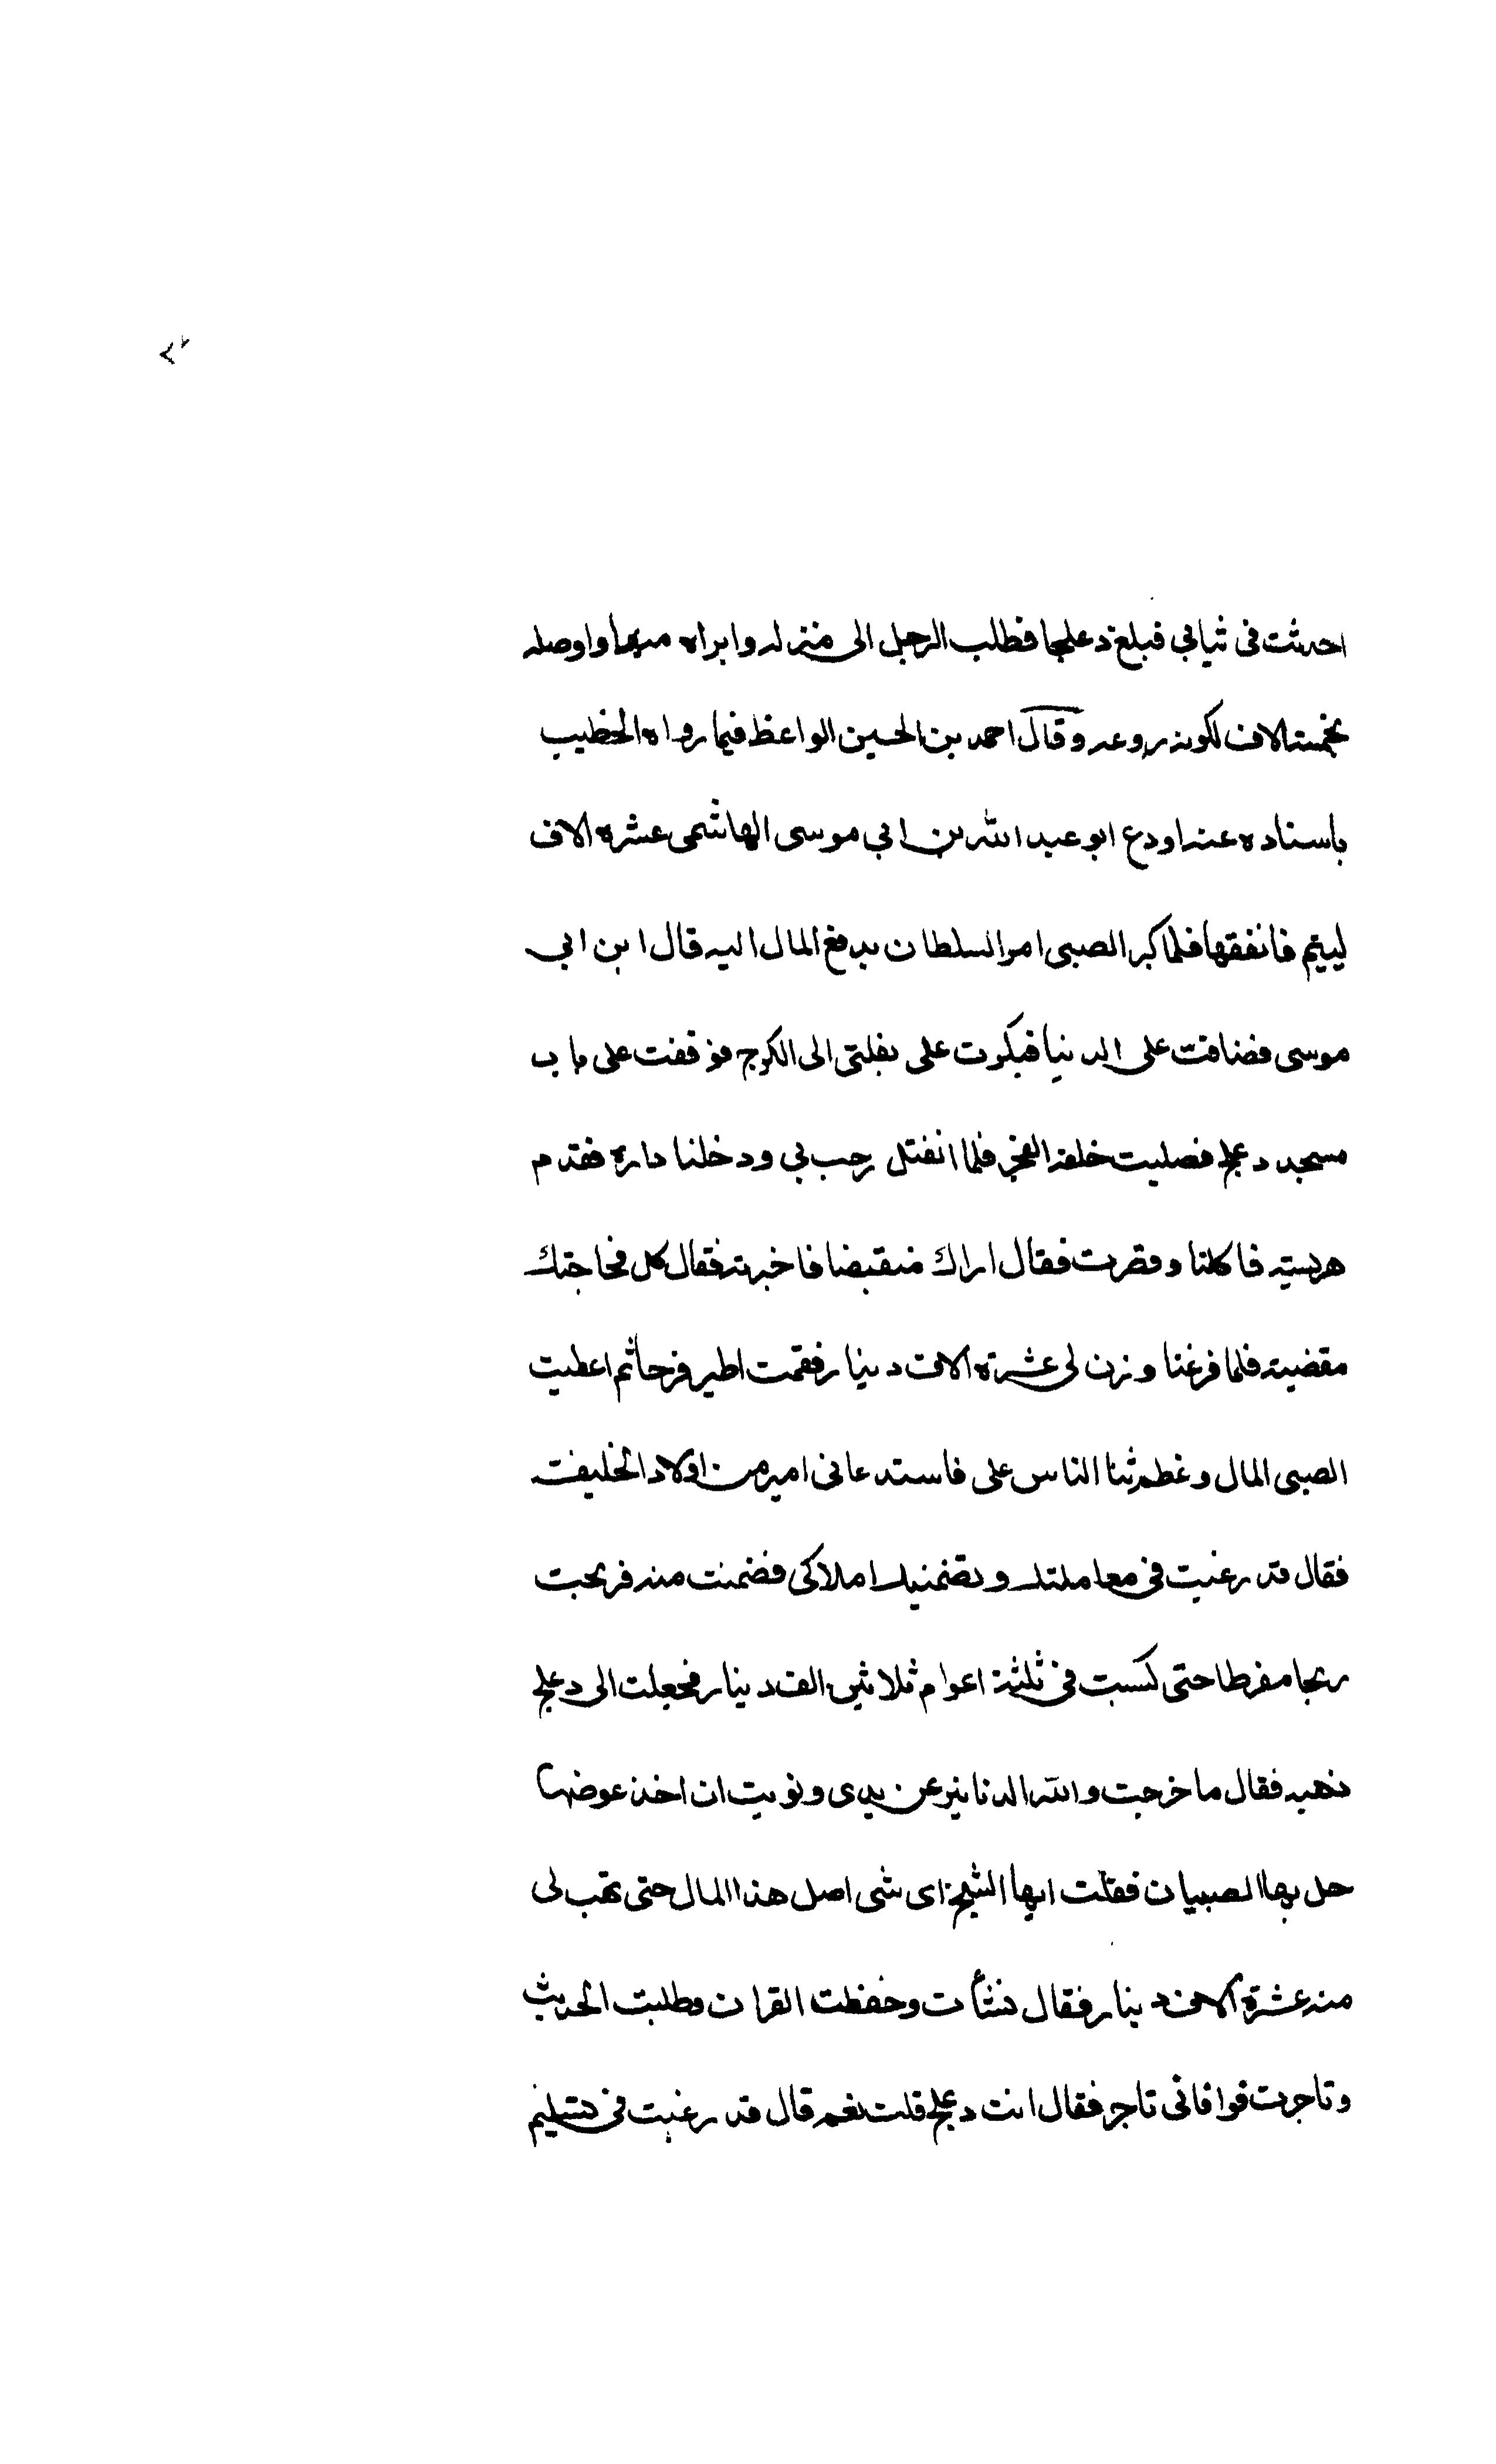 احدثت في ثيابي فبلغ دعلجا فطلب الرجل الى منزله وابراه منها واوصله
بخمسة الاف لكونه روعه وقال احمد بن الحسين الواعظ فيما رواه الخطيب
باسناده عنه اودع ابو عبد الله بن ابي موسى الهاشمى عشره الاف
ليتيم فانفقها فلما كبر الصبى امر السلطان بدفع المال اليه قال ابن ابي
موسى فضاقت على الدنيا فبكرت على بغلتى الى الكرج فوقفت على باب
مسجد دعلج فصليت خلفه الفجر فلما انفتل رحب بي ودخلنا داره فقدم
هريسة فاكلنا وقصرت فقال اراك منقبضا فاخبرته فقال كل فحاجتك
مقضية فلما فرغنا وزن لى عشرة الاف دينار فقمت اطير فرحا ثم اعطيت
الصبى المال وعظم ثنا الناس على فاستدعانى امير من اولاد الخليفة
فقال قد رغبت في معاملتك وتضمنيك املاكى فضمنت منه فربحت
ربحا مفرطا حتى كسبت في ثلثة اعوام ثلاثين الف دينار فحملت الى دعلج
ذهبه فقال ما خرجت والله الدنانير عن يدى ونويت ان اخذ عوضها
حل بها الصبيان فقلت ايها الشيخ اى شى اصل هذا المال حتى تهب لى
منه عشرة الاف دينار فقال نشأت وحفظت القران وطلبت الحديث
وتاجرت فوافانى تاجر فقال انت دعلج قلت نعم قال قد رغبت في تسليم